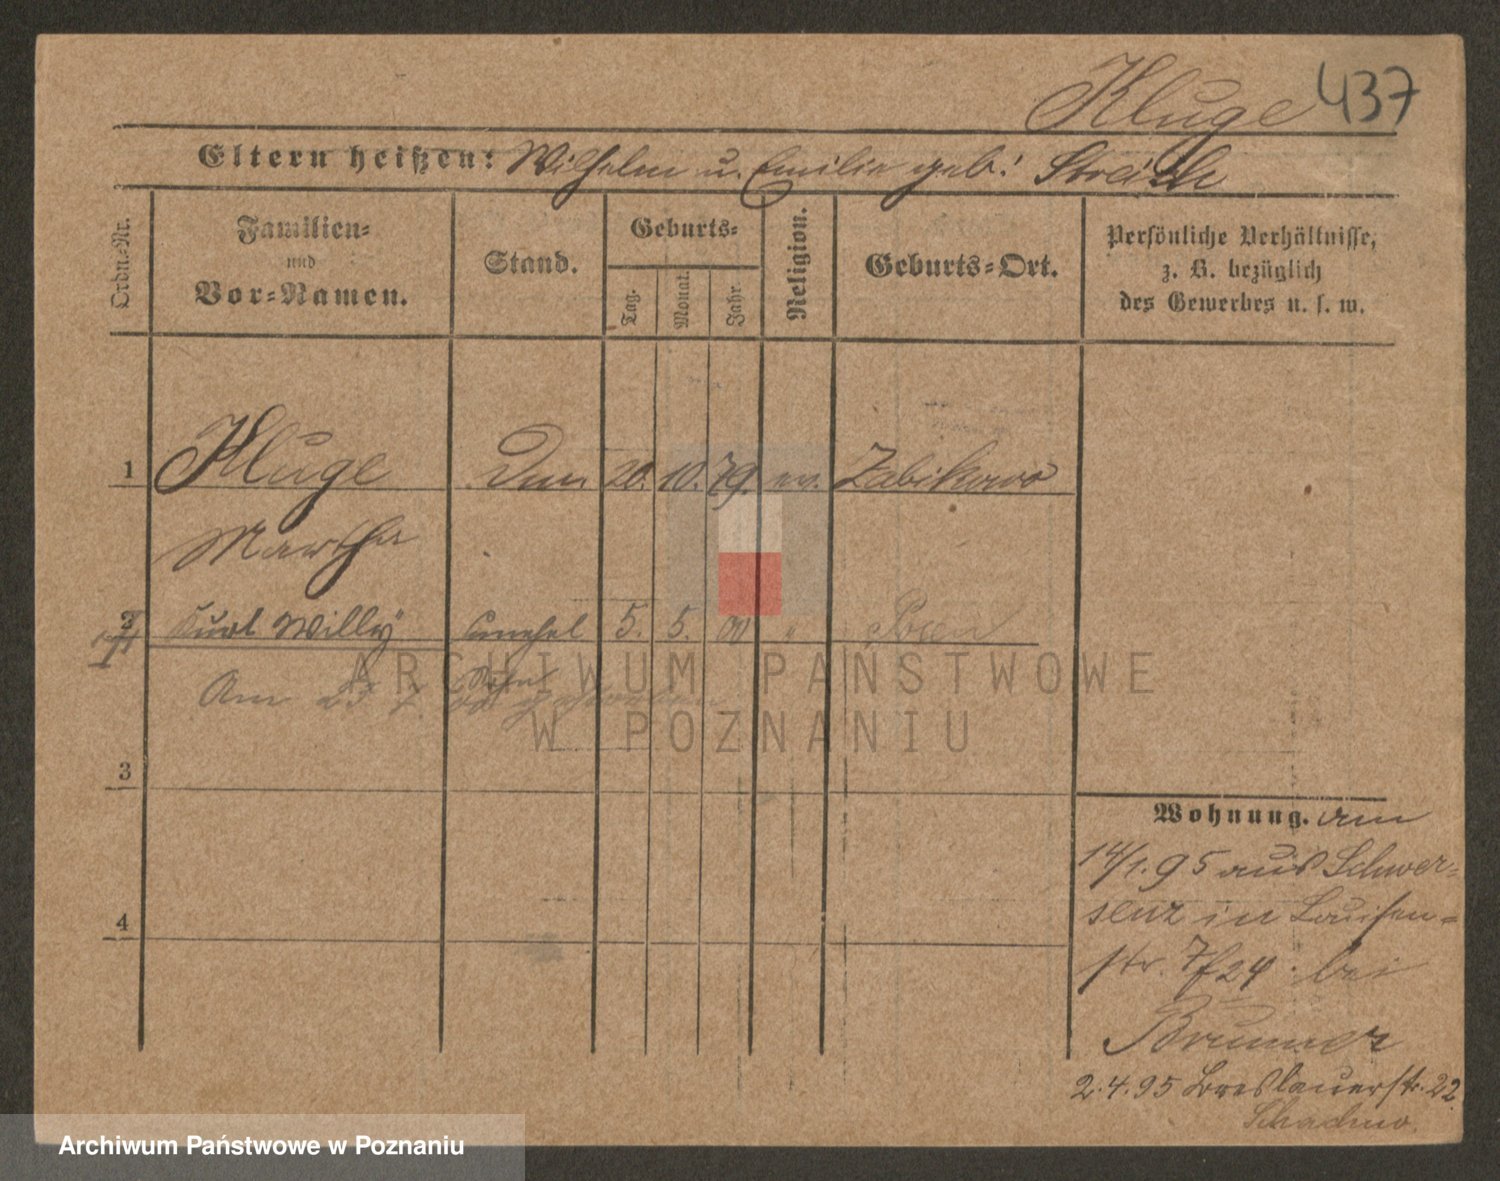 Kluge 437
Eltern heißen: Wilhelm u. Emilie geb: Streich
Ordn.-Nr.
Familien-
und
Vor-Namen.
Stand.
Geburts-
Tag.
Monat.
Jahr.
Religion.
Geburts-Ort.
Persönliche Verhältnisse,
z. B. bezüglich
des Gewerbes u. s. w.
1 Kluge 20. 10. 79. ev. Zabikowo
Martha
2 Kurt Willy 5. 5. 00 " Posen
Am
ARCHIWUM PAŃSTWOWE
W POZNANIU
3
4
Wohnung. am
14/1.95 aus Schwer-
senz in Louisen-
str. 7/24 bei
Brunner
2.4.95 Breslauerstr. 22.
Archiwum Państwowe w Poznaniu